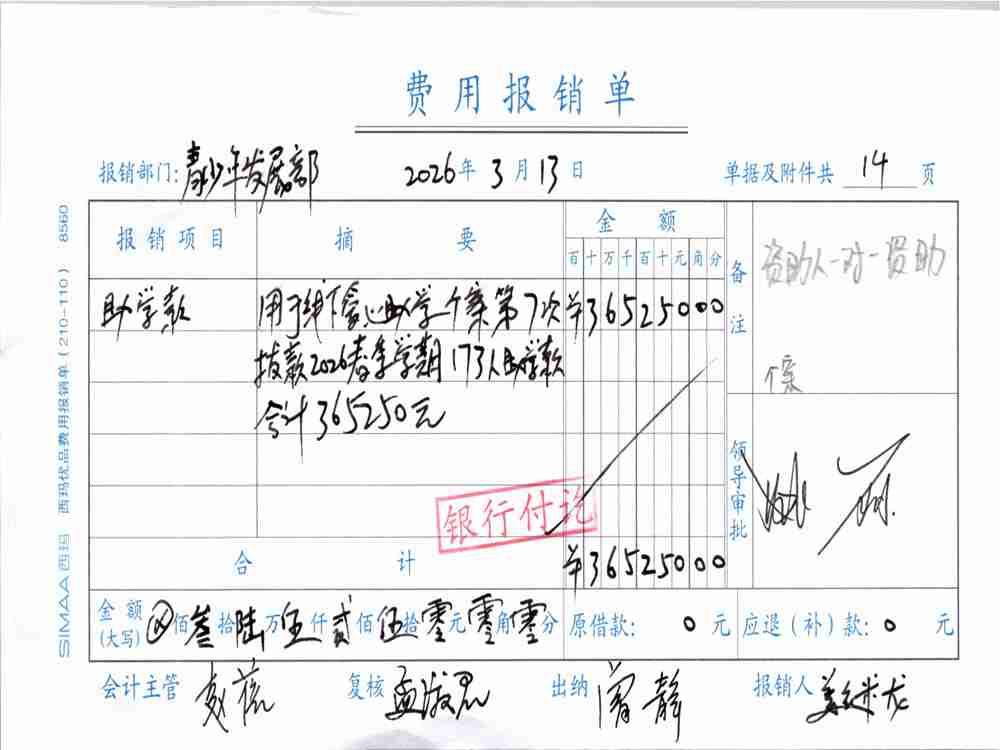 费用报销单
报销部门:青少年发展部 2026年3月13日 单据及附件共 14 页
报销项目 摘要 金额 备注
百十万千百十元角分
资助人一对一资助
个案
助学款 用于线下爱心助学个案第7次 ¥36525000
拨款2026春季学期173人助学款
合计365250元
领导审批
银行付讫
合计 ¥36525000
金额(大写) ⊗佰叁拾陆万伍仟贰佰伍拾零元零角零分 原借款: 0 元 应退(补)款: 0 元
会计主管 复核 孟淑君 出纳 阎静 报销人 姜米龙
SIMAA西玛 西玛优品费用报销单(210-110) 8560